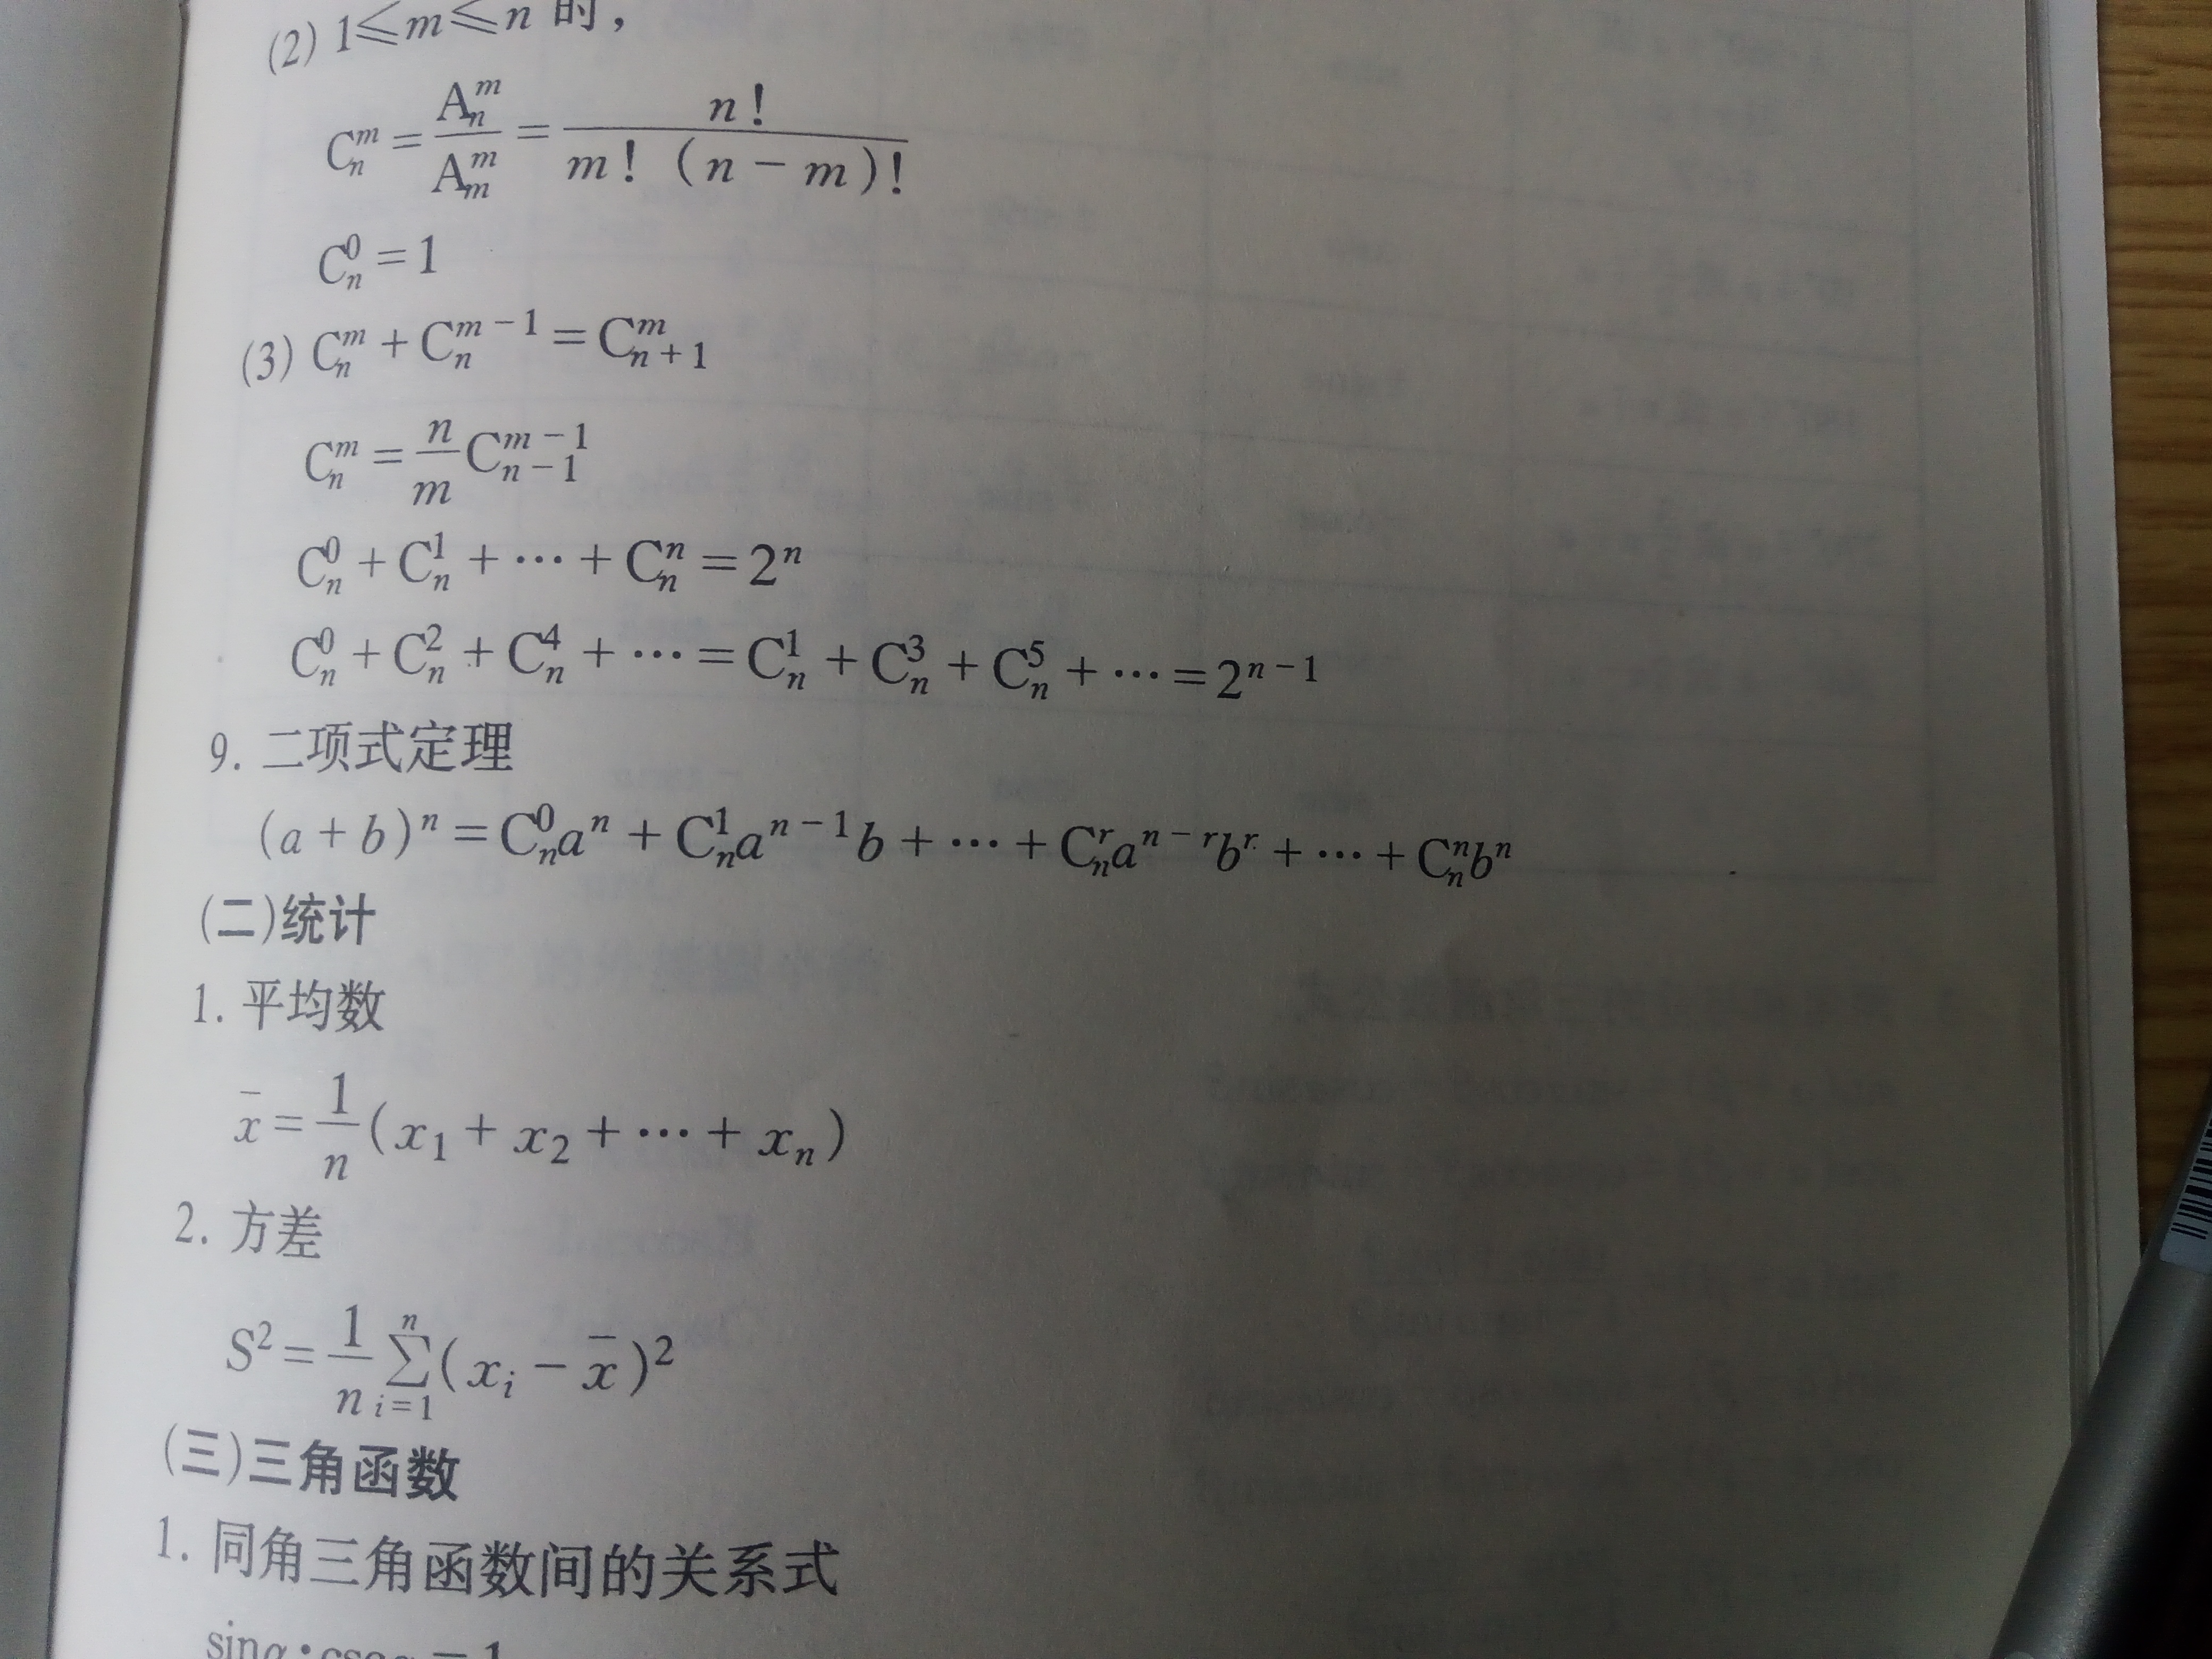 (2) 1≤m≤n 时,
C_n^m = A_n^m / A_m^m = n! / (m! (n - m)!)
C_n^0 = 1
(3) C_n^m + C_n^{m-1} = C_{n+1}^m
C_n^m = n/m C_{n-1}^{m-1}
C_n^0 + C_n^1 + ⋯ + C_n^n = 2^n
C_n^0 + C_n^2 + C_n^4 + ⋯ = C_n^1 + C_n^3 + C_n^5 + ⋯ = 2^{n-1}
9. 二项式定理
(a + b)^n = C_n^0 a^n + C_n^1 a^{n-1} b + ⋯ + C_n^r a^{n-r} b^r + ⋯ + C_n^n b^n
(二)统计
1. 平均数
x̄ = 1/n (x_1 + x_2 + ⋯ + x_n)
2. 方差
S^2 = 1/n ∑_{i=1}^n (x_i - x̄)^2
(三)三角函数
1. 同角三角函数间的关系式
sinα·cscα = 1